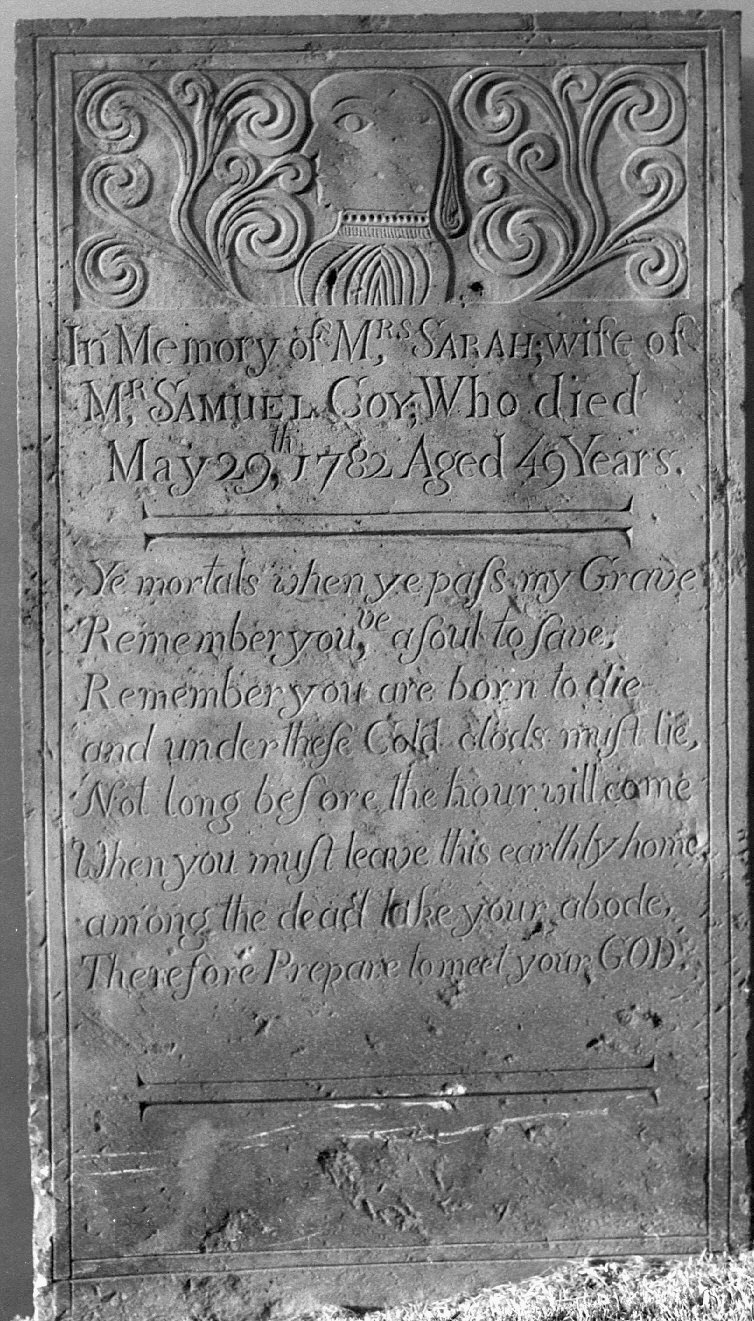 In Memory of M,ʳˢ SARAH; wife of
M,ʳ SAMUEL COY; Who died
May 29,ᵗʰ 1782 Aged 49 Years.
Ye mortals when ye paſs my Grave
Remember you,ᵛᵉ a ſoul to ſave,
Remember you are born to die
and under theſe Cold clods muſt lie,
Not long before the hour will come
When you muſt leave this earthly home,
among the dead take your abode,
Therefore Prepare to meet your GOD.